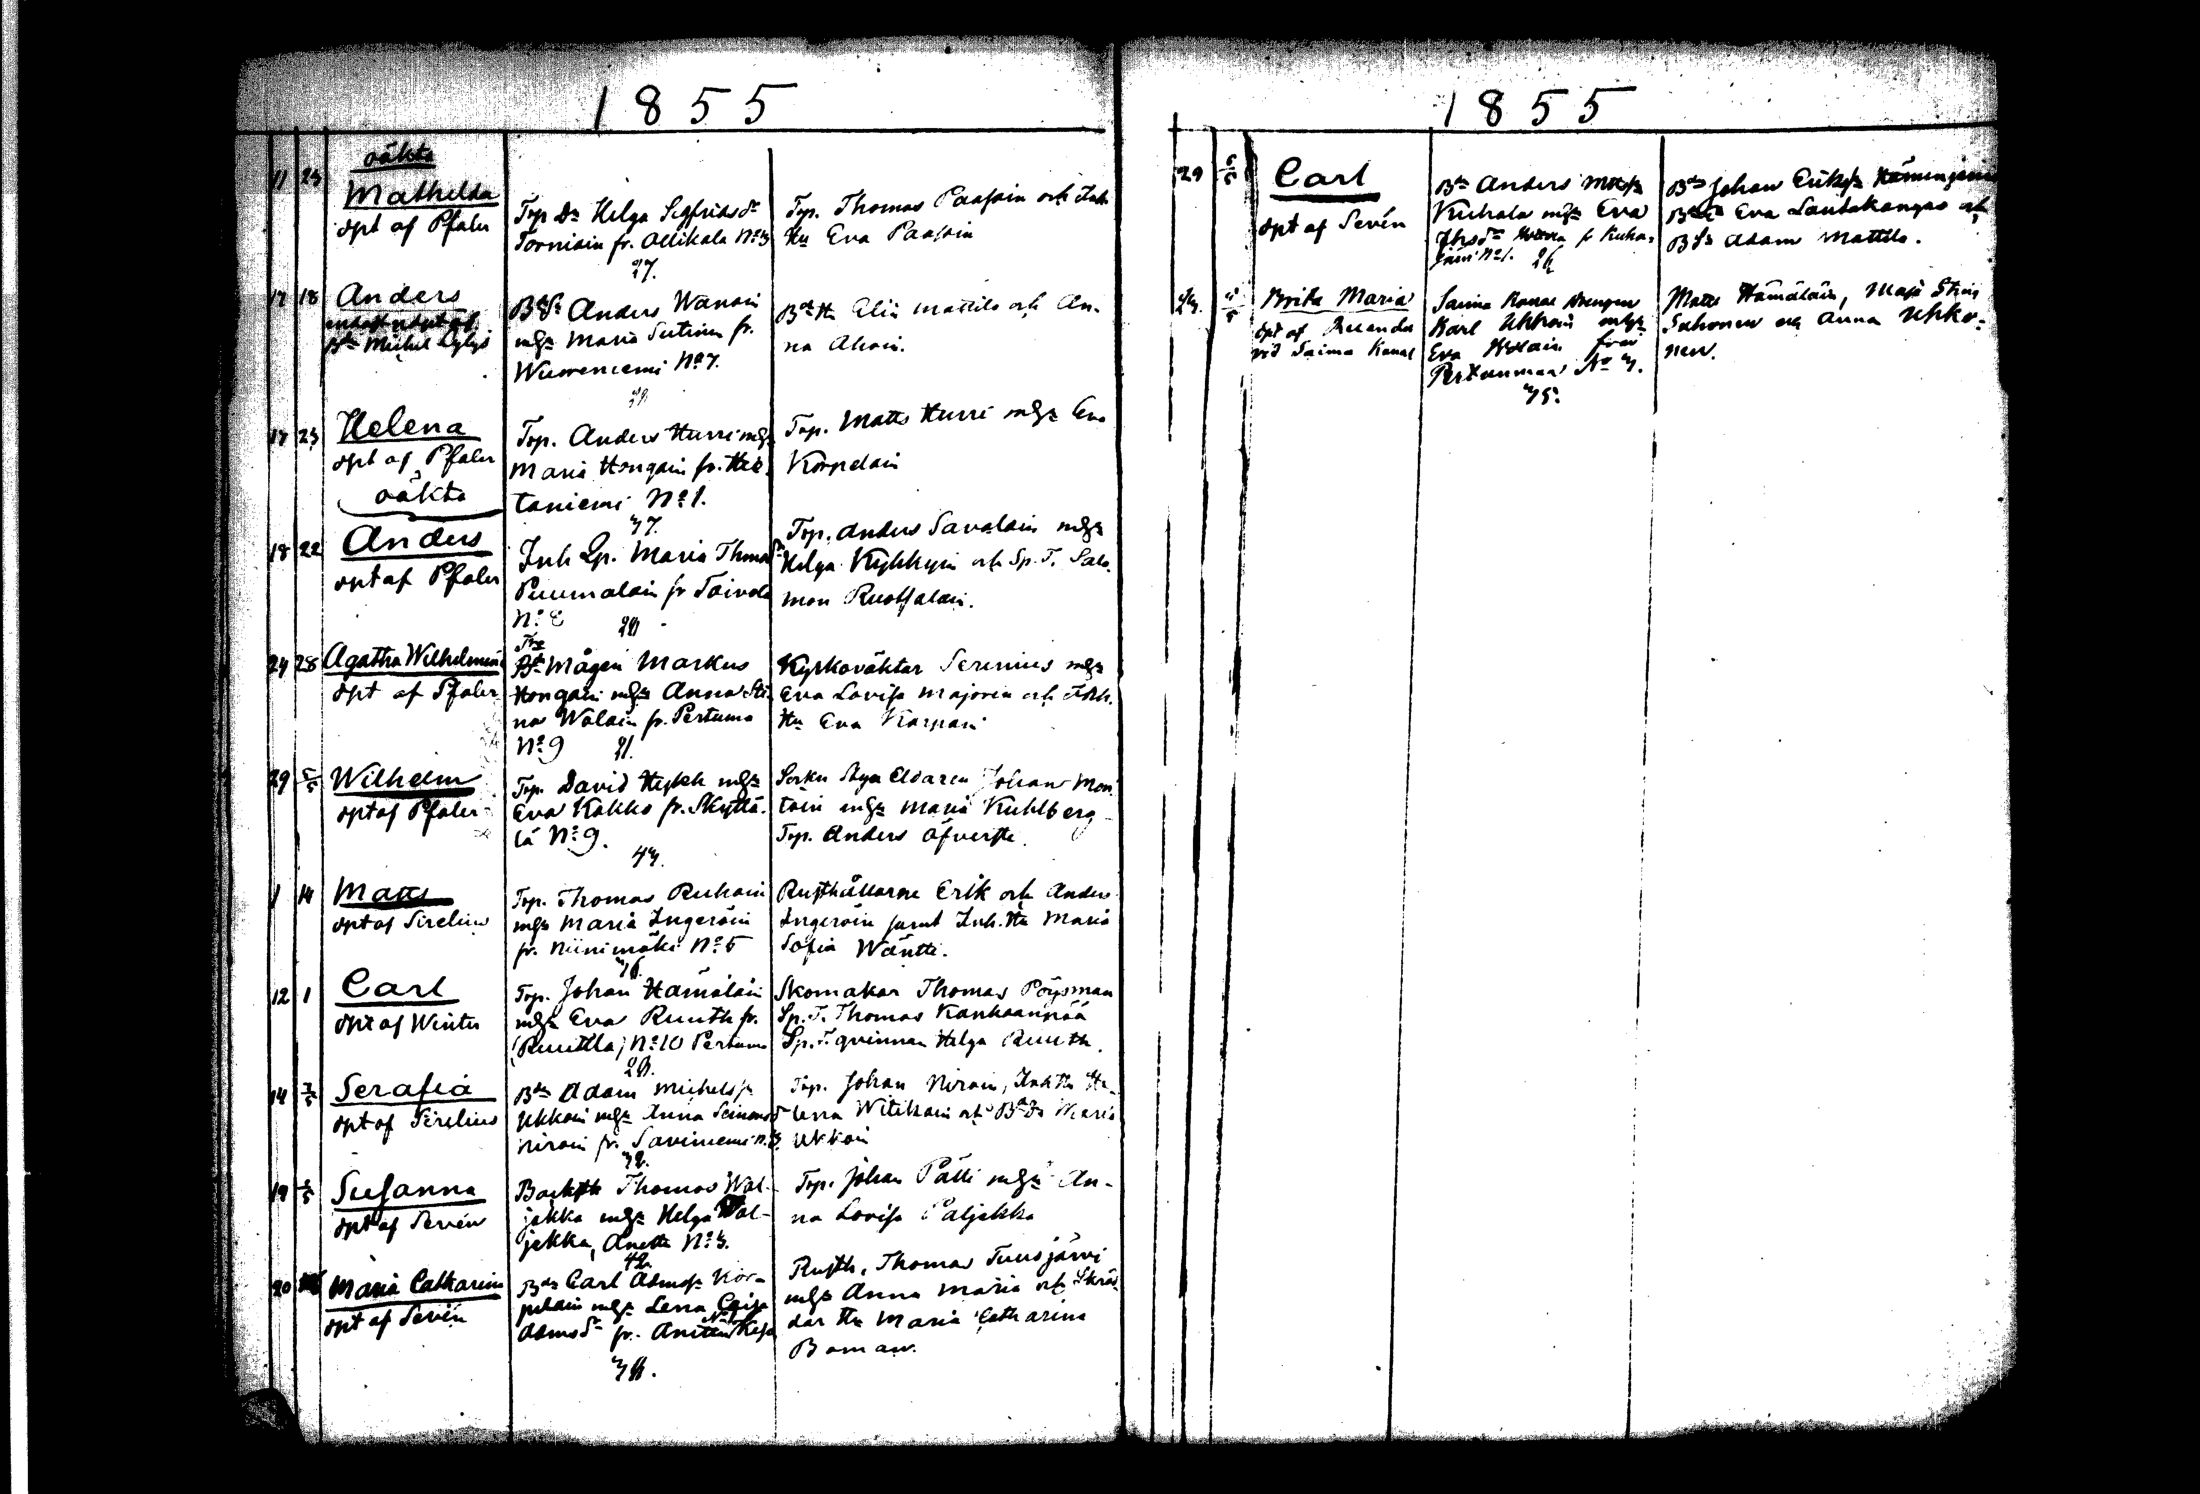 1855
oäkta
11 23 Mathilda
dpt af Pfaler
Trp Dr Helga Sigfridsdr
Torniain fr. Ollikala No 3
27.
Trp. Thomas Paasoin och Inh
Hu Eva Paasoin
17 18 Anders
Bde Michel
Bds Anders Wanain
mha Maria Sutinen fr.
Wuoreniemi No 7.
Bde H Elia Mattila och An-
na Ahoin.
17 23 Helena
dpt af Pfaler
Trp. Anders Hurri mha
Maria Hongain fr. Hie-
taniemi No 1.
37.
Trp. Matts Hurri mha Eva
Korpelain
oäkta
18 22 Anders
dpt af Pfaler
Inh Qp. Maria Thmasdr
Puumalain fr Toivola
No 8
Trp. Anders Savolain mha
Helga Kyhkyin och Sp. T. Salo-
mon Ruotsalain.
24 28 Agatha Wilhelmina
dpt af Pfaler
Bde Mågen Markus
Hongain mha Anna Sti-
na Wälain fr. Pertuma
No 9 21.
Kyrkoväktar Serenius mha
Eva Lovisa Majorin och
Hu Eva Karpain
29 5/5 Wilhelm
dpt af Pfaler
Trp. David Heikk mha
Eva Kakko fr. Skyttä-
lä No 9.
43.
Johan Mon-
toin mha Maria Kuhlberg
Trp. Anders Öfverste.
1 14 Matts
dpt af Sirelius
Trp. Thomas Ruhain
mha Maria Ingeröin
fr. Niinimäki No 5
36.
Rusthållarne Erik och Anders
Ingeröin samt Inh. Hu Maria
Sofia Wäntti.
12 1 Carl
dpt af Winter
Trp. Johan Hämäläin
mha Eva Ruuth fr.
(Ruuttila) No 10 Pertuma
28.
Skomakar Thomas Pöysman
Sp. T. Thomas Kankaanpää
Sp. T. qvinnan Helga Ruuth.
14 7/5 Serafia
dpt af Sirelius
Bds Adam Michelss
Ukkoin mha Anna Seimonsdr
Niroin fr. Saviniemi N. 3.
32.
Trp. Johan Niroin, Inh Hu He-
lena Witikain och Bde Dr Maria
Ukkoin
19 5/5 Susanna
dpt af Sevén
Backsth Thomas Wal-
jakka mha Helga Wal-
jakka, Anetti No 3.
42.
Trp. Johan Pälli mha An-
na Lovisa Paljakka
20 Maria Catharina
dpt af Sevén
Bds Carl Adamss Kor-
pelain mha Lena Caisa
Adamsdr fr.
38.
Rusth. Thomas Tuusjärvi
mha Anna Maria och Skräd-
dar Hu Maria Catharina
Boman.
1855
29 5/5 Carl
dpt af Sevén
Bds Anders Matss
Kuhala mha Eva
Jhrsdr fr Kuha-
järvi No 1. 26
Bds Johan Erikss
Eva Lautakangas och
Bds Adam Mattila.
Brita Maria
dpt af Relander
vid Saima Kanal
Saima Kanal Drengen
Karl Uhkoin mha
Eva Holain från
Pertunmaa No 3.
35.
Matts Hämäläin, Maja Stina
Suhonen och Anna Uhko-
nen.